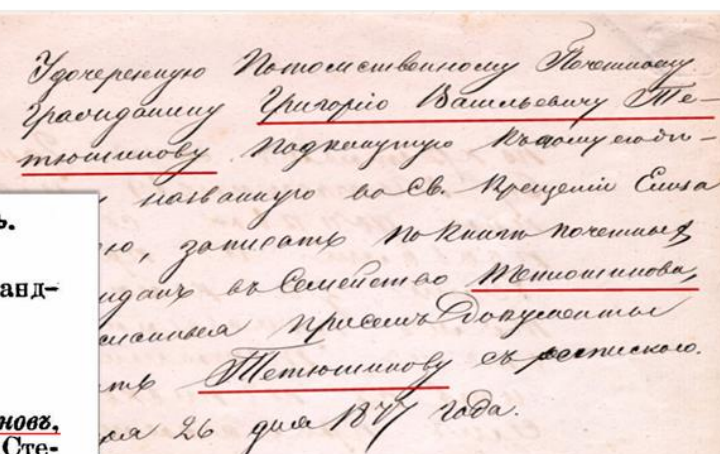 Удочеренную Потомственному Почетному
Гражданину Григорію Васильевичу Те-
тюшинову подкинутую къ дому его ди-
названную во Св. Крещеніи Елиза
ю, записать по книгѣ почетных
ждан въ Семейство Тетюшинова,
присемъ Документы
ть Тетюшинову съ роспискою.
ря 26 дня 1877 года.
ъ.
анд-
новъ,
Сте-